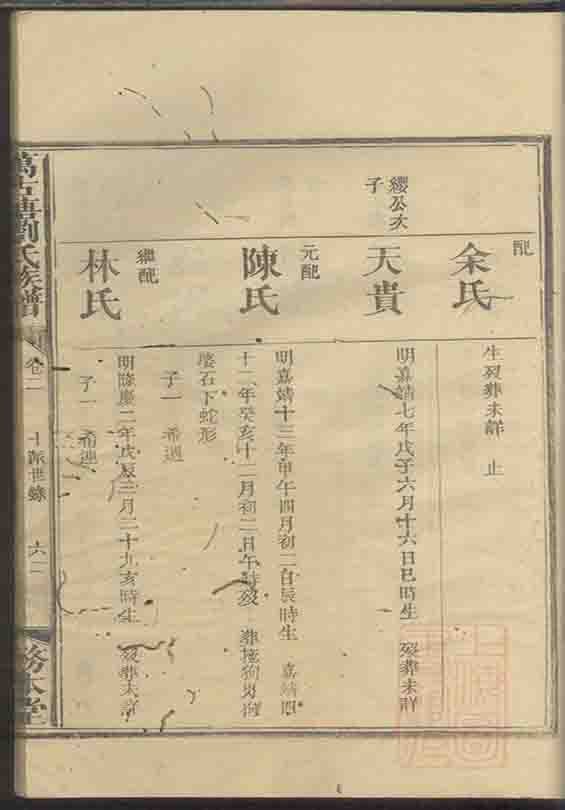 配
余氏
生歿葬未詳 止
纓公次
子
天貴
明嘉靖七年戊子六月十六日巳時生 歿葬未詳
元配
陳氏
明嘉靖十三年甲午四月初二日辰時生 嘉靖四
十二年癸亥十二月初二日午時歿 葬
婆石下蛇形
子一 希
繼配
林氏
明隆慶二年戊辰三月二十九亥時生 歿葬未詳
子一 希進
萬古塘劉氏族譜 卷二 十派世錄 六 務本堂